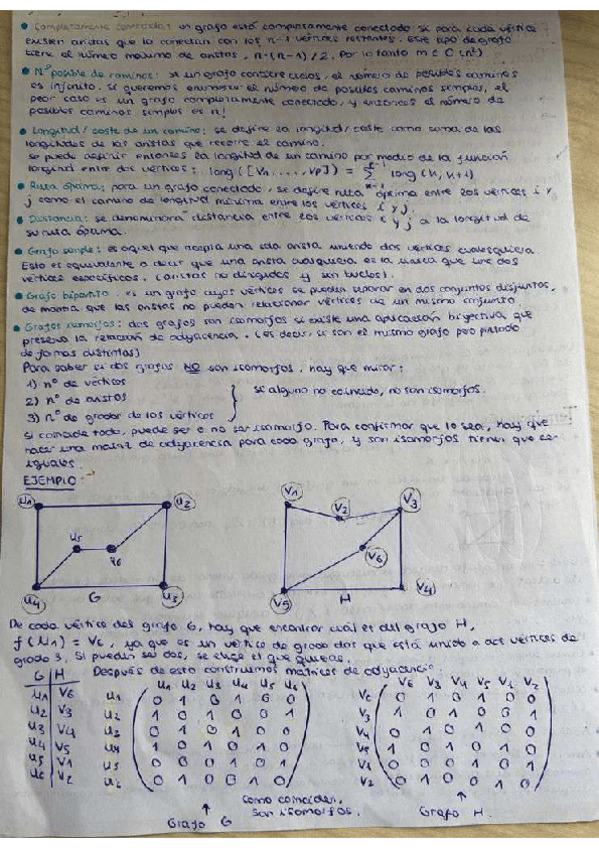 • Completamente conectado: un grafo está completamente conectado si para cada vértice
existen aristas que la conectan con los n-1 vértices restantes. Este tipo de grafo
tiene el número máximo de aristas, n·(n-1)/2. Por lo tanto m ∈ O(n²)
• Nº posible de caminos: si un grafo contiene ciclos, el número de posibles caminos
es infinito. Si queremos enumerar el número de posibles caminos simples, el
peor caso es un grafo completamente conectado, y entonces el número de
posibles caminos simples es n!
• Longitud/coste de un camino: se define la longitud/coste como suma de las
longitudes de las aristas que recorre el camino.
Se puede definir entonces la longitud de un camino por medio de la función
longitud entre dos vértices: long([V1, ..., Vp]) = Σ long(V, V+1)
• Ruta óptima: para un grafo conectado, se define ruta óptima entre los vértices i y
j como el camino de longitud mínima entre los vértices i y j.
• Distancia: se denominará distancia entre los vértices i y j a la longitud de
su ruta óptima.
• Grafo simple: es aquel que acepta una sola arista uniendo dos vértices cualesquiera.
Esto es equivalente a decir que una arista cualquiera es la única que une dos
vértices específicos. (aristas no dirigidas y sin bucles).
• Grafo bipartito: es un grafo cuyos vértices se pueden separar en dos conjuntos disjuntos,
de manera que las aristas no pueden relacionar vértices de un mismo conjunto.
• Grafos isomorfos: dos grafos son isomorfos si existe una aplicación biyectiva que
preserva la relación de adyacencia. (es decir, si son el mismo grafo pero pintado
de formas distintas)
Para saber si dos grafos NO son isomorfos, hay que mirar:
1) nº de vértices
2) nº de aristas
3) nº de grados de los vértices
si alguno no coincide, no son isomorfos.
Si coincide todo, puede ser o no ser isomorfo. Para confirmar que lo sea, hay que
hacer una matriz de adyacencia para cada grafo, y si son isomorfos tienen que ser
iguales.
EJEMPLO:
u1 u2 V1 V2 V3
u5 u6 V6
u4 G u3 V5 H V4
De cada vértice del grafo G, hay que encontrar cuál es del grafo H,
f(u1) = V6, ya que es un vértice de grado dos que está unido a dos vértices de
grado 3. Si pueden ser dos, se elige el que quieras.
G H Después de esto construimos matrices de adyacencia:
u1 u2 u3 u4 u5 u6 V6 V3 V4 V5 V1 V2
u1 V6 u1 0 1 0 1 0 0 V6 0 1 0 1 0 0
u2 V3 u2 1 0 1 0 0 1 V3 1 0 1 0 0 1
u3 V4 u3 0 1 0 1 0 0 V4 0 1 0 1 0 0
u4 V5 u4 1 0 1 0 1 0 V5 1 0 1 0 1 0
u5 V1 u5 0 0 0 1 0 1 V1 0 0 0 1 0 1
u6 V2 u6 0 1 0 0 1 0 V2 0 1 0 0 1 0
↑ Grafo G
Como coinciden,
son isomorfos.
↑ Grafo H.